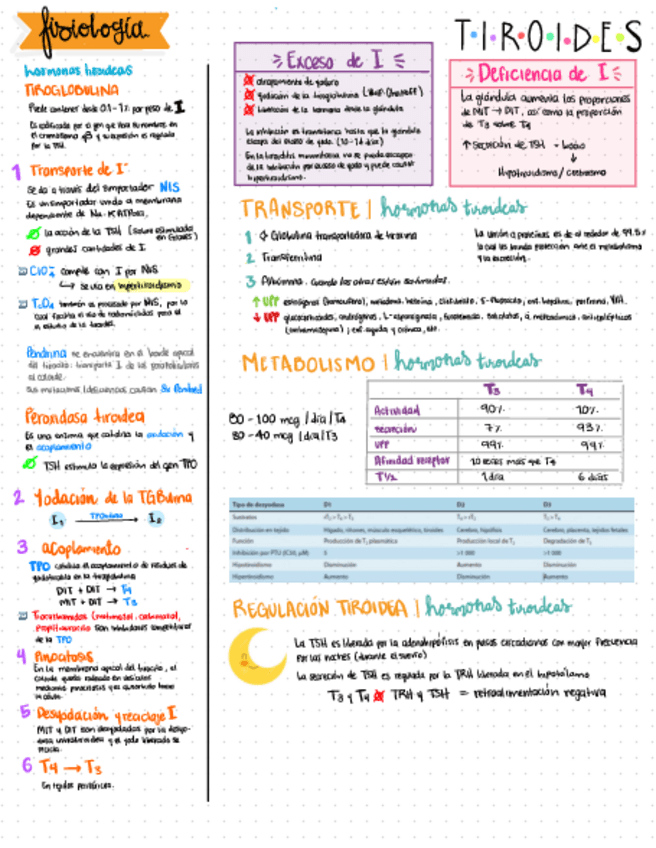 fisiología
TIROIDES
hormonas tiroideas
TIROGLOBULINA
Puede contener desde 0.1 - 1% por peso de I
Es codificada por un gen que lleva su nombre en
el cromosoma y su expresión es regulada
por la TSH.
1 Transporte de I⁻
Se da a través del simportador NIS
Es un simportador unido a membrana
dependiente de Na-K ATPasa,
la acción de la TSH (Sobre estimulada
en Graves)
grandes cantidades de I
ClO₄⁻ compite con I por NIS
Se usa en hipertiroidismo
TcO₄ también es procesado por NIS, por lo
cual facilita el uso de radionúclidos para
el estudio de la tiroides.
Pendrina se encuentra en el borde apical
del tirocito: transporta I de las
al coloide.
Sus mutaciones/deficiencias causan Sx Pendred
Peroxidasa tiroidea
Es una enzima que cataliza la oxidación y
el acoplamiento
TSH estimula la expresión del gen TPO
2 Yodación de la TGBulina
I₁ I₂
3 acoplamiento
TPO cataliza el acoplamiento de residuos de
en la tiroglobulina
DIT + DIT → T4
MIT + DIT → T3
Tiocarbamidas (metimazol, carbimazol,
Propiltiouracilo son inhibidores competitivos
de la TPO
4 Pinocitosis
En la membrana apical del tirocito, el
coloide queda rodeado en vesículas
mediante pinocitosis
5 Desyodación y reciclaje I
MIT y DIT son desyodadas por la desyo-
dasa intratiroidea y el yodo liberado se
recicla.
6 T4 → T3
En tejidos periféricos.
Exceso de I
atrapamiento de yoduro
yodación de la tiroglobulina (Wolff Chaikoff)
Liberación de la hormona desde la glándula
La inhibición es transitoria hasta que la glándula
escapa del exceso de yodo. (10 - 14 días)
En la tiroiditis autoinmune no se puede escapar
de la inhibición por exceso de yodo y puede causar
hipotiroidismo.
Deficiencia de I
La glándula aumenta las proporciones
de MIT → DIT, así como la proporción
de T3 sobre T4
↑ Secreción de TSH - bocio
↓
Hipotiroidismo/cretinismo
TRANSPORTE | hormonas tiroideas
1 Globulina transportadora de tiroxina
2 Transtirretina
3 Albúmina. Cuando las otras están saturadas.
La unión a proteínas es de al rededor de 99.5%
lo cual les brinda protección ante el metabolismo
y la excreción.
↑ UPP estrógenos (tamoxifeno), metadona, heroína, clofibrato, 5-fluoracilo, enf. hepática, porfiria, VIH.
↓ UPP glucocorticoides, andrógenos, L-asparaginasa, furosemida, salicilatos, á. mefenámico, antiepilépticos
(carbamazepina), enf. aguda y crónica, etc.
METABOLISMO | hormonas tiroideas
80 - 100 mcg / día / T4
30 - 40 mcg / día / T3
T3 T4
Actividad 90% 10%
secreción 7% 93%
UPP 99% 99%
Afinidad receptor 10 veces más que T4
T½ 1 día 6 días
Tipo de desyodasa D1 D2 D3
Sustratos rT₃ > T₄ > T₃ T₄ > rT₃ T₃ > T₄
Distribución en tejido Hígado, riñones, músculo esquelético, tiroides Cerebro, hipófisis Cerebro, placenta, tejidos fetales
Función Producción de T₃ plasmática Producción local de T₃ Degradación de T₃
Inhibición por PTU (IC50, µM) 5 >1 000 >1 000
Hipotiroidismo Disminución Aumento Disminución
Hipertiroidismo Aumento Disminución Aumento
REGULACIÓN TIROIDEA | hormonas tiroideas
La TSH es liberada por la adenohipófisis en pulsos circadianos con mayor frecuencia
por las noches (durante el sueño)
La secreción de TSH es regulada por la TRH liberada en el hipotálamo
T3 y T4 TRH y TSH = retroalimentación negativa